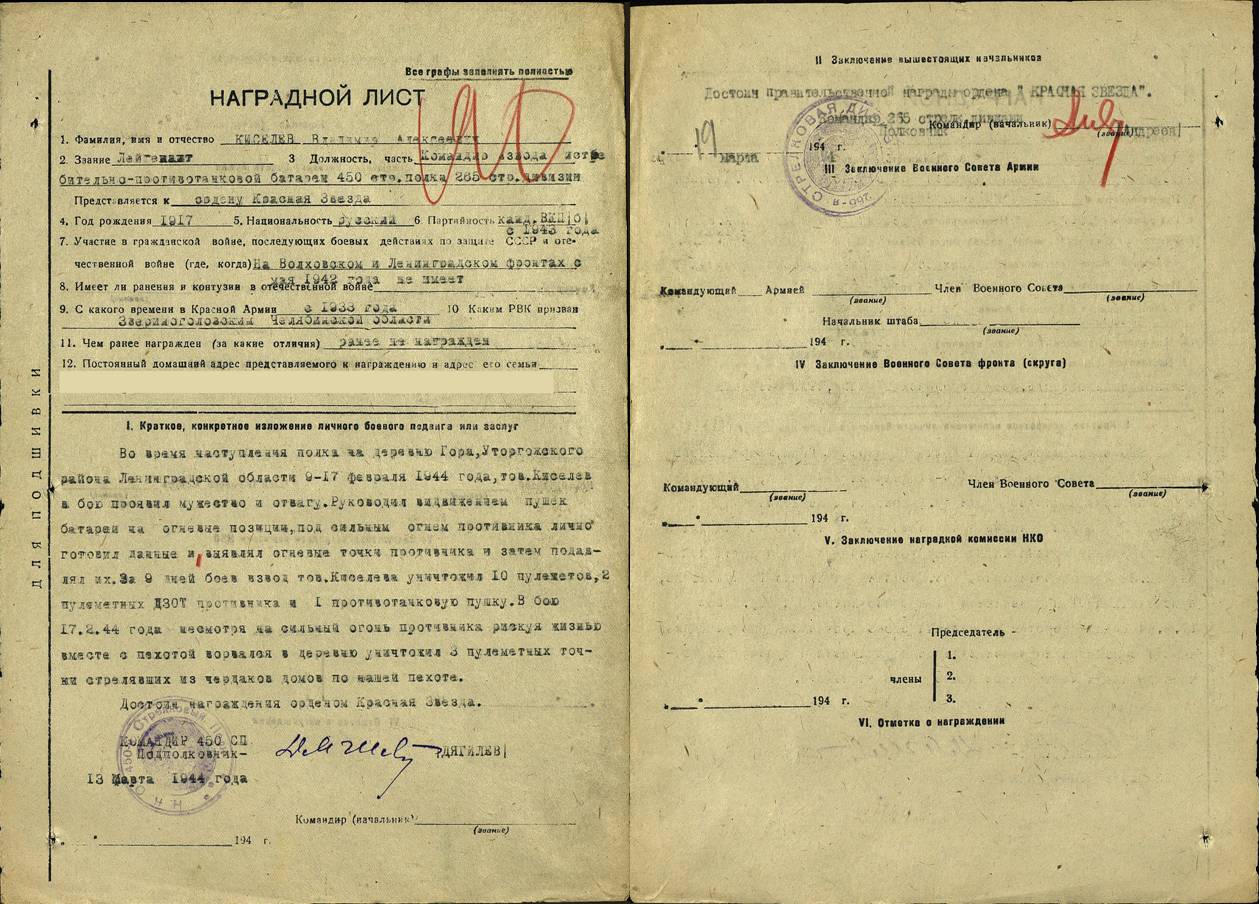 ДЛЯ ПОДШИВКИ
Все графы заполнять полностью
НАГРАДНОЙ ЛИСТ
1. Фамилия, имя и отчество КИСЕЛЕВ Владимир Алексеевич
2. Звание Лейтенант 3 Должность, часть Командир взвода истре
бительно-противотанковой батареи 450 стр.полка 265 стр.дивизии
Представляется к ордену Красная Звезда
4. Год рождения 1917 5. Национальность русский 6 Партийность канд.ВКП(б)
с 1943 года
7. Участие в гражданской войне, последующих боевых действиях по защите СССР и оте-
чественной войне (где, когда) На Волховском и Ленинградском фронтах с
мая 1942 года
8. Имеет ли ранения и контузии в отечественной войне не имеет
9. С какого времени в Красной Армии с 1938 года 10 Каким РВК призван
Звериноголовским Челябинской области
11. Чем ранее награжден (за какие отличия) ранее не награжден
12. Постоянный домашний адрес представляемого к награждению и адрес его семьи
I. Краткое, конкретное изложение личного боевого подвига или заслуг
Во время наступления полка на деревню Гора, Уторгожского
района Ленинградской области 9-17 февраля 1944 года, тов.Киселев
в бою проявил мужество и отвагу. Руководил выдвижением пушек
батареи на огневые позиции, под сильным огнем противника лично
готовил данные и выявлял огневые точки противника и затем подав-
лял их. За 9 дней боев взвод тов.Киселева уничтожил 10 пулеметов, 2
пулеметных ДЗОТ противника и 1 противотанковую пушку. В бою
17.2.44 года несмотря на сильный огонь противника рискуя жизнью
вместе с пехотой ворвался в деревню уничтожил 3 пулеметных точ-
ки стрелявших из чердаков домов по нашей пехоте.
Достоин награждения орденом Красная Звезда.
КОМАНДИР 450 СП
Подполковник- (ДЯГИЛЕВ)
13 Марта 1944 года
Командир (начальник)
(звание)
194 г.
II Заключение вышестоящих начальников
Достоин правительственной награды ордена "КРАСНАЯ ЗВЕЗДА".
Командир 265 стрелк.дивизии
Полковник Командир (начальник) (Андреев)
(звание)
19 марта 194 4 г.
III Заключение Военного Совета Армии
Командующий Армией Член Военного Совета
(звание) (звание)
Начальник штаба
(звание)
194 г.
IV Заключение Военного Совета фронта (округа)
Командующий Член Военного Совета
(звание) (звание)
194 г.
V. Заключение наградной комиссии НКО
Председатель
члены
1.
2.
3.
194 г.
VI. Отметка о награждении